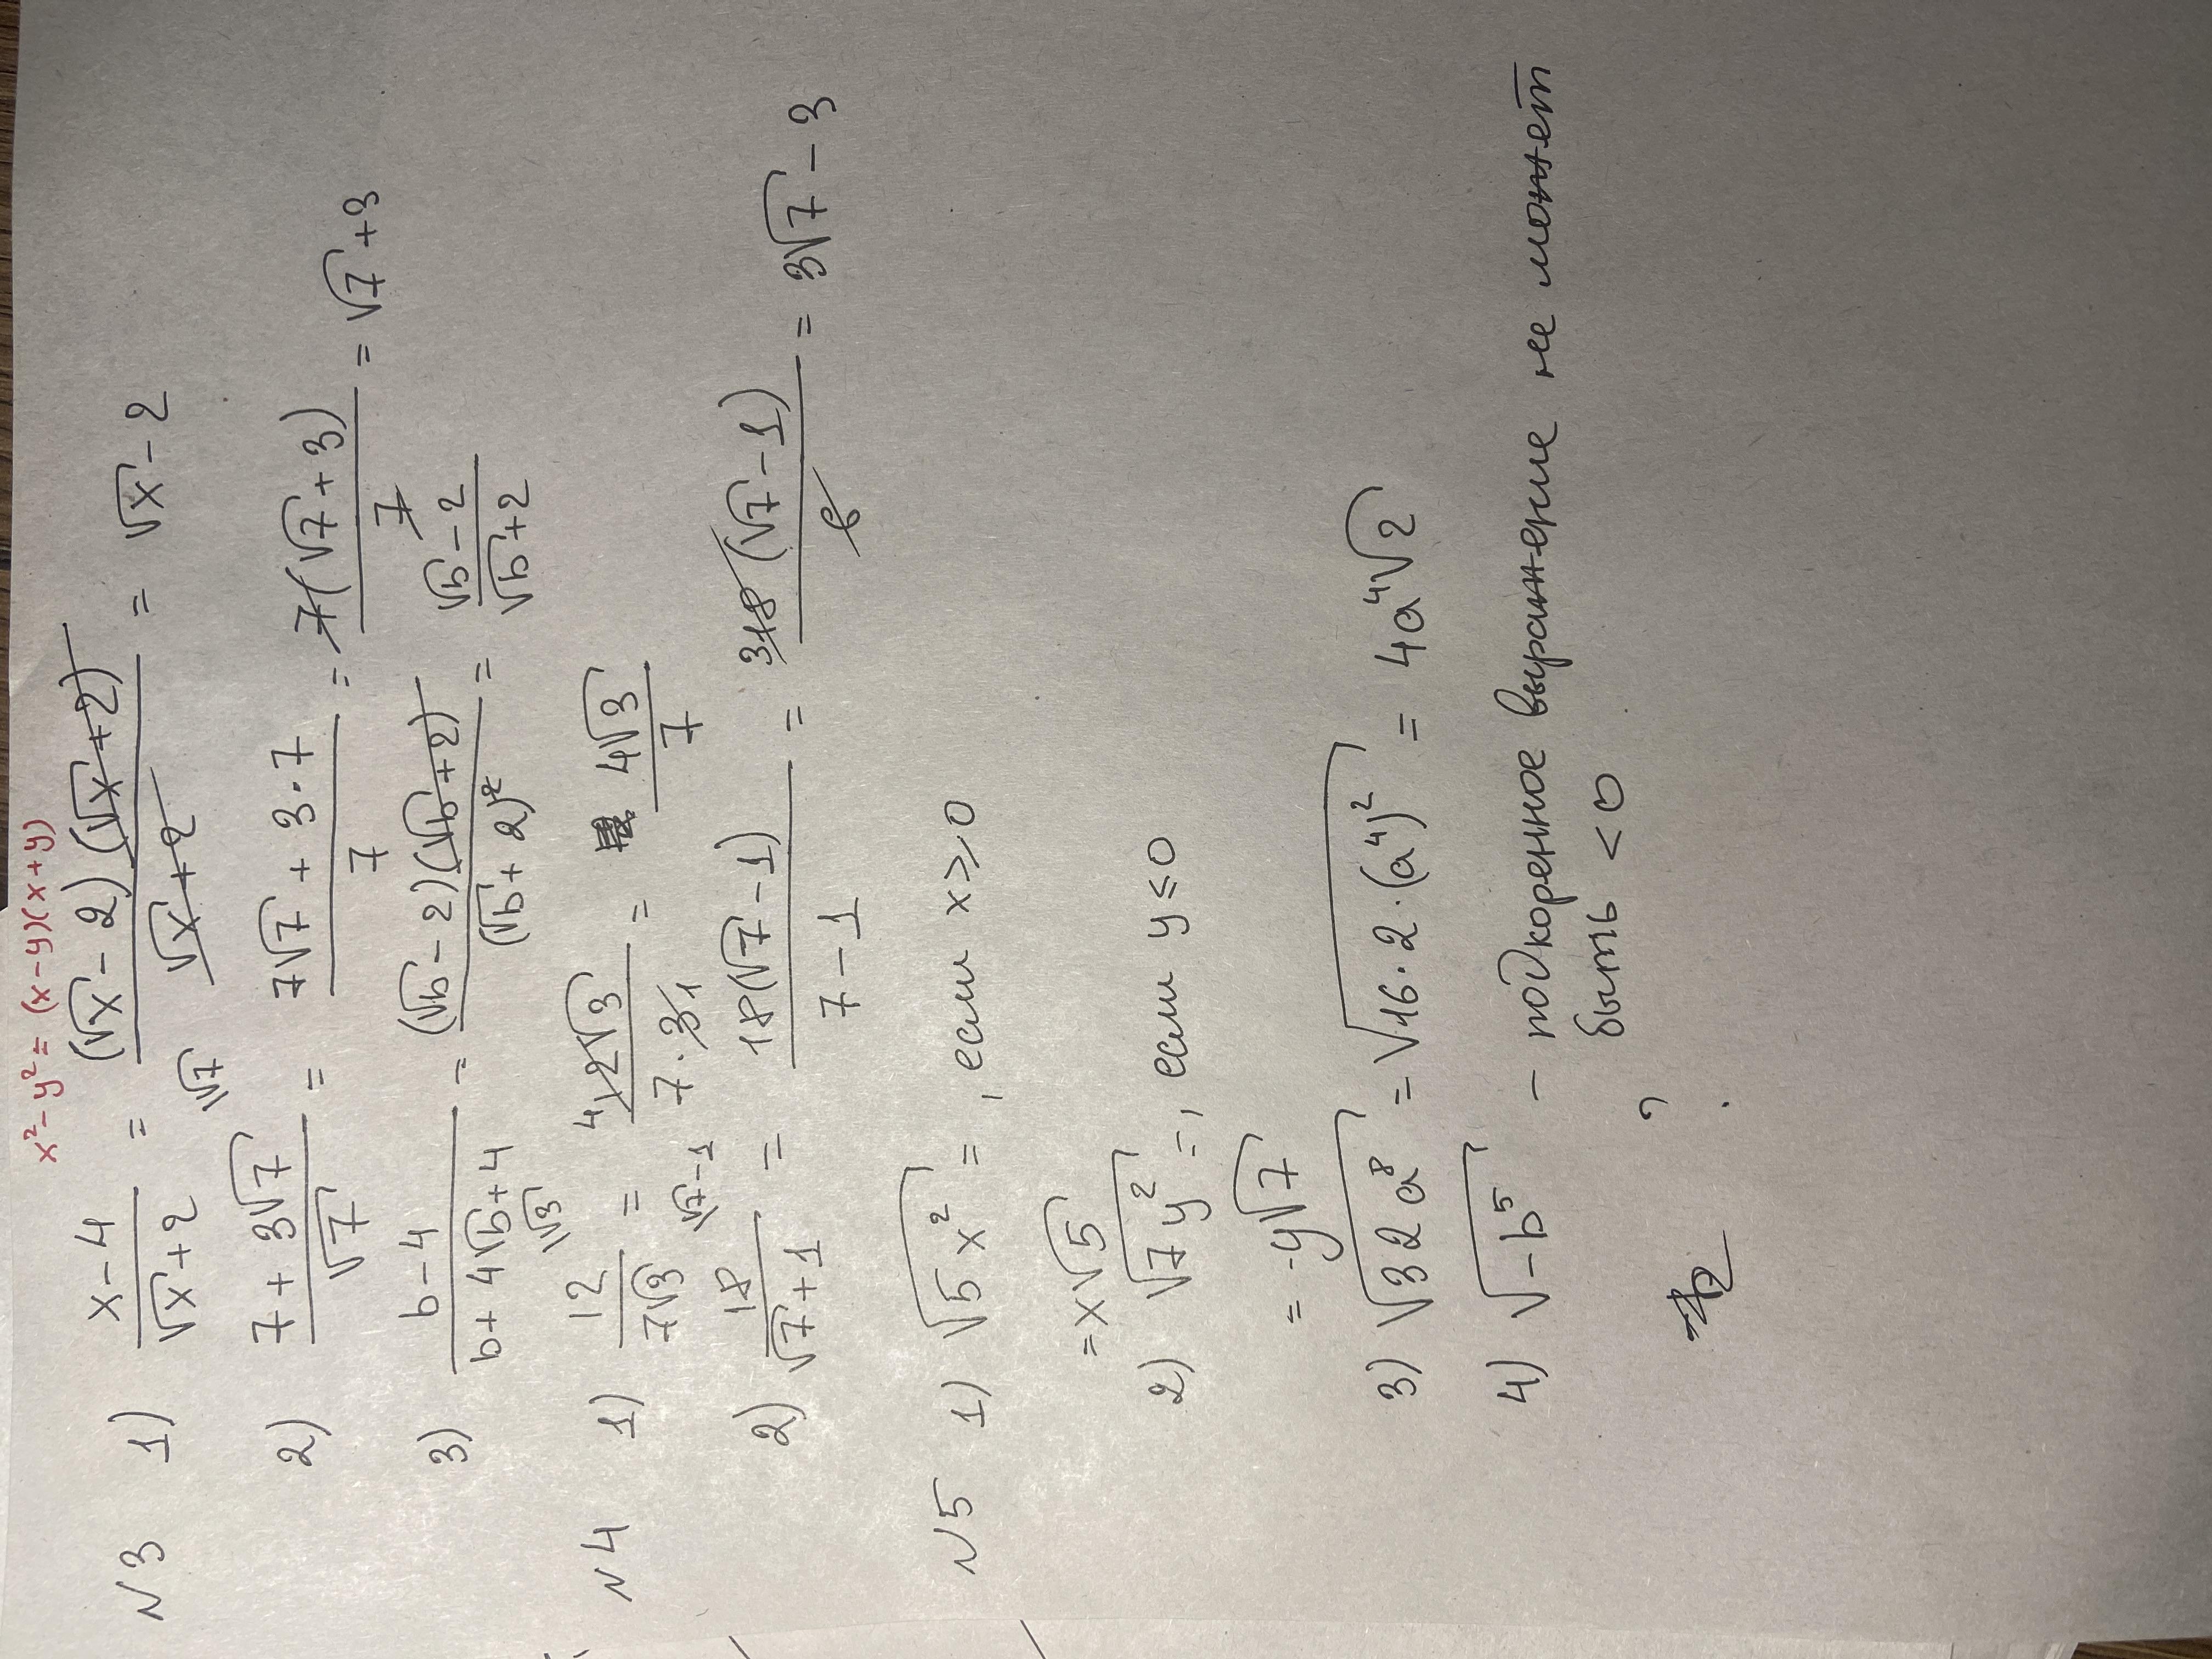 x² - y² = (x-y)(x+y)
N3 1) (x-4)/(√x+2) = (√x-2)(√x+2)/(√x+2) = √x-2
2) (7+3√7)/√7 \√7 = (7√7+3·7)/7 = 7(√7+3)/7 = √7+3
3) (b-4)/(b+4√b+4) = (√b-2)(√b+2)/(√b+2)² = (√b-2)/(√b+2)
N4 1) 12/(7√3) \√3 = 4 12√3/(7·3 1) = 4√3/7
2) 18/(√7+1) \√7-1 = 18(√7-1)/(7-1) = 3 18(√7-1)/6 = 3√7-3
N5 1) √(5x²) = , если x≥0
= x√5
2) √(7y²) = , если y≤0
= -y√7
3) √(32a⁸) = √(16·2·(a⁴)²) = 4a⁴√2
4) √(-b⁵) - подкоренное выражение не может
быть < 0
?